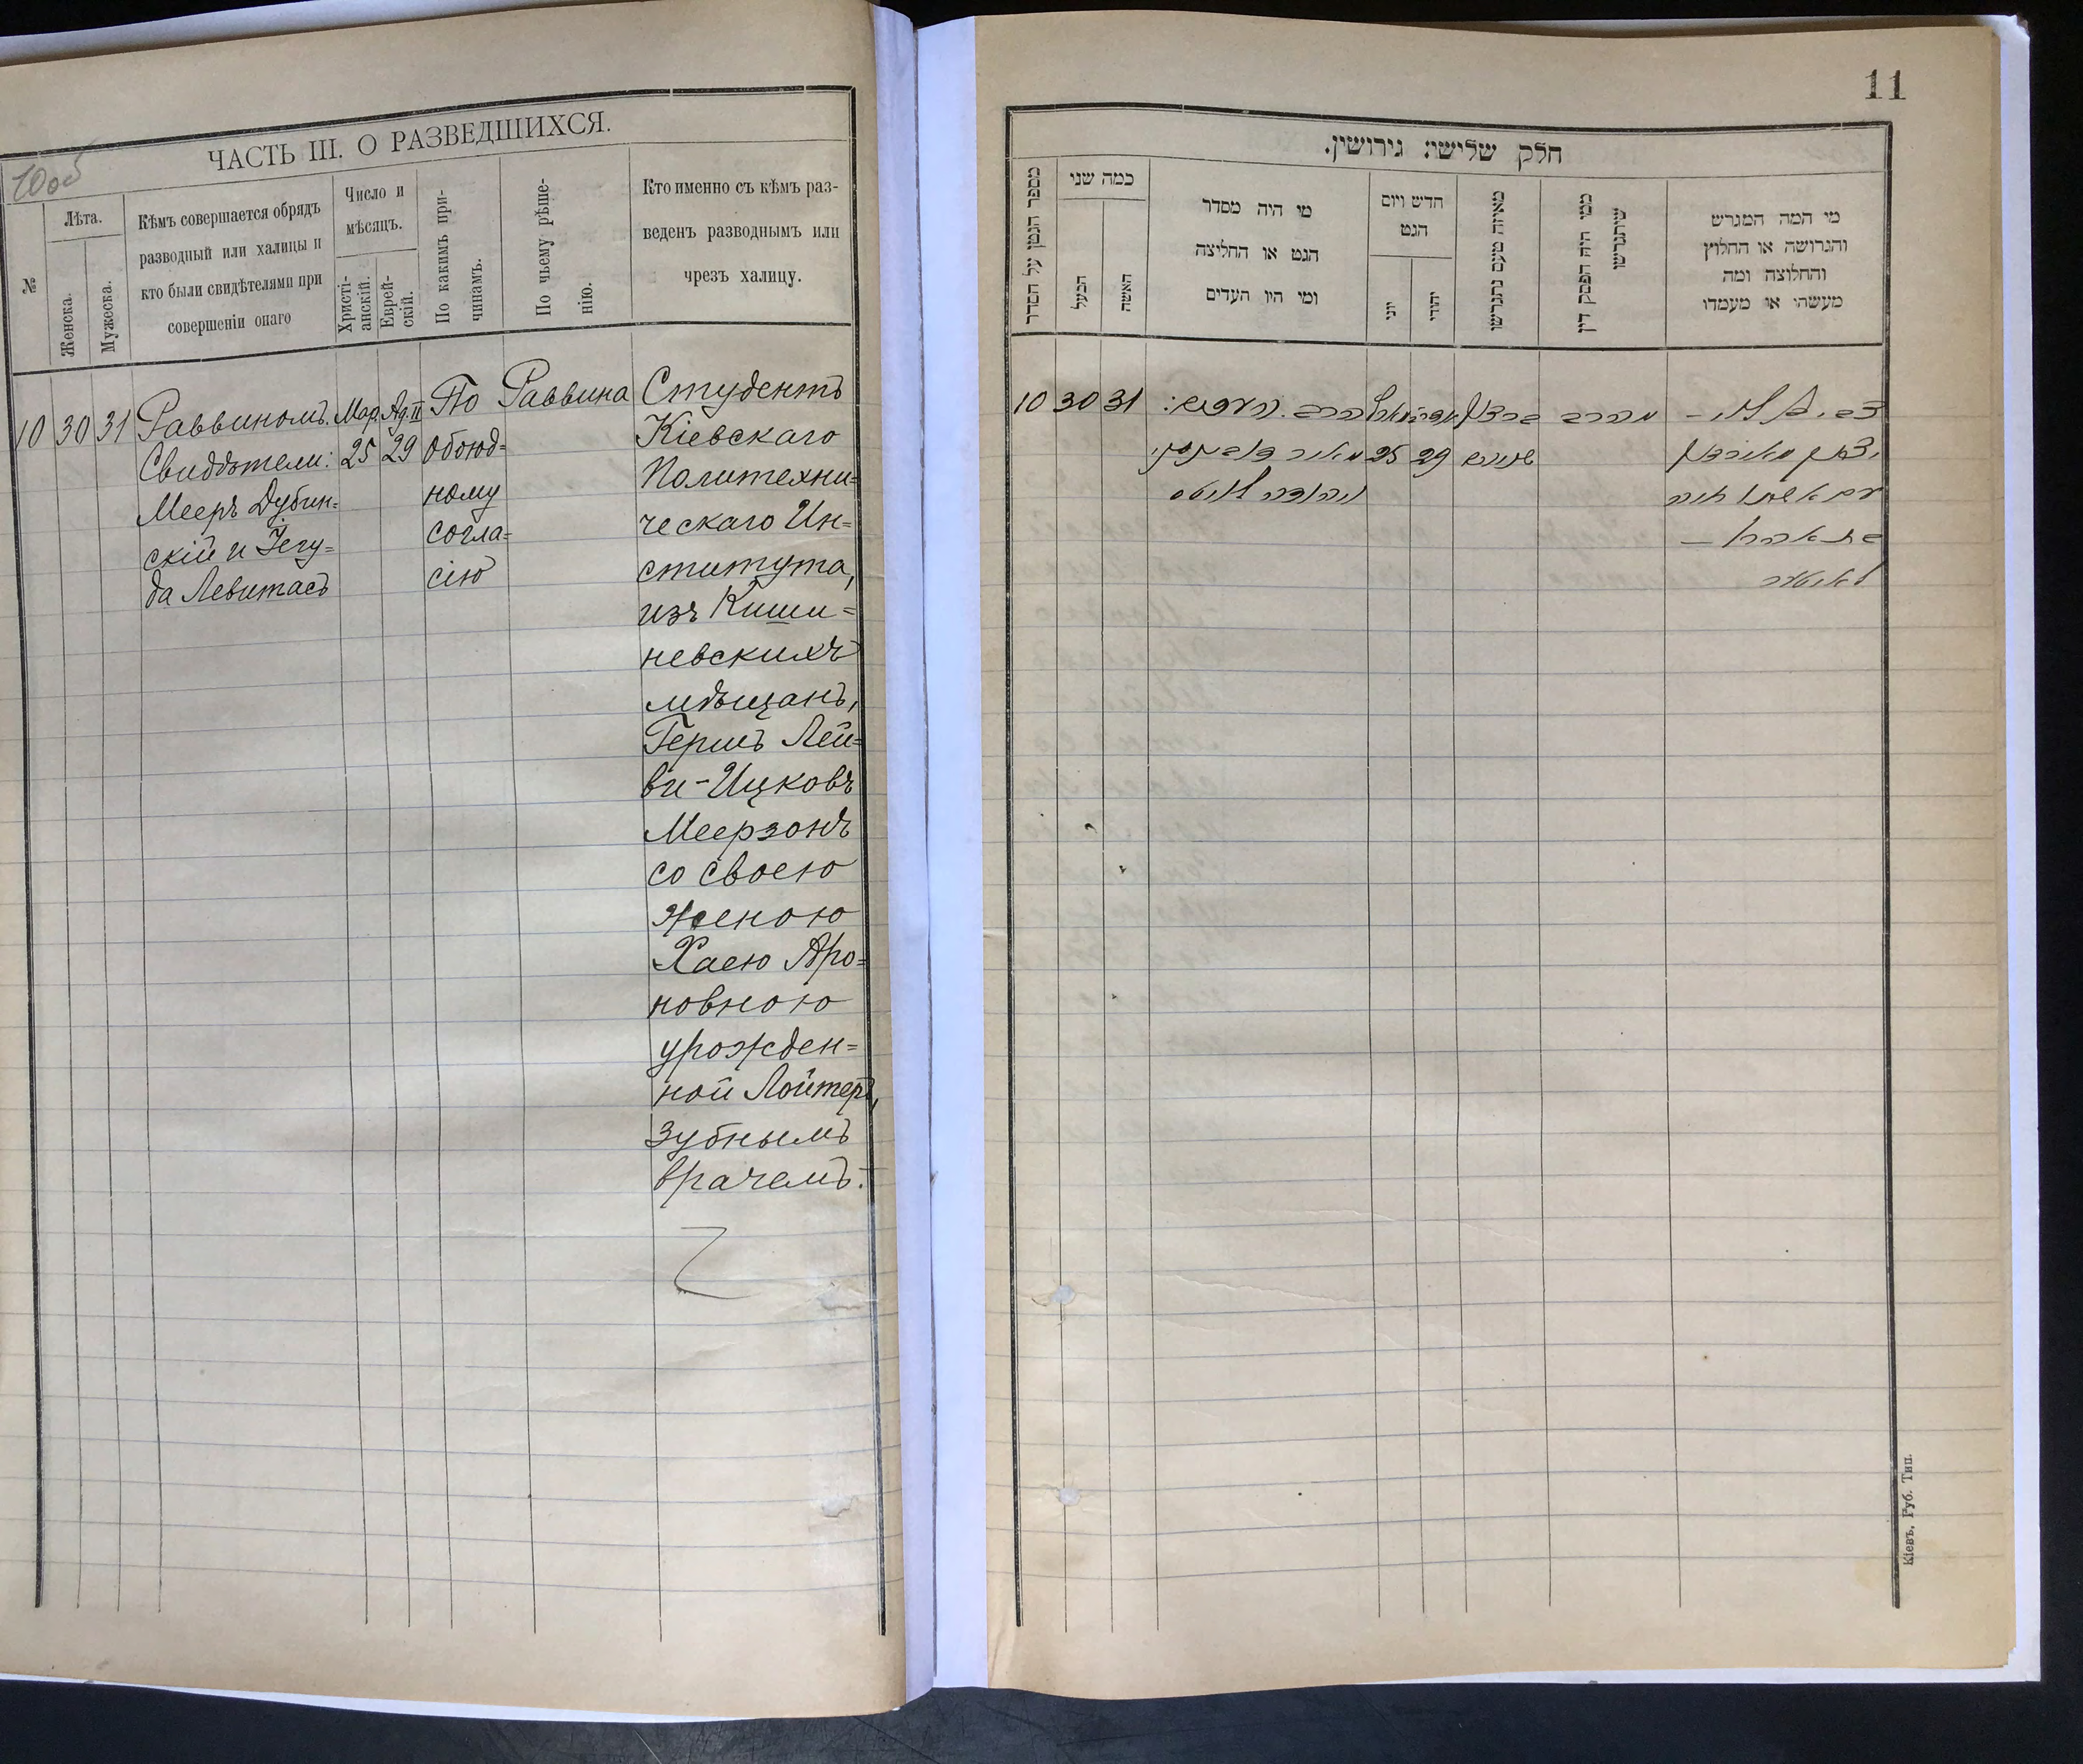 10об
ЧАСТЬ III. О РАЗВЕДШИХСЯ.
№
Лѣта.
Женска.
Мужеска.
Кѣмъ совершается обрядъ
разводный или халицы и
кто были свидѣтелями при
совершеніи онаго
Число и
мѣсяцъ.
Христі-
анскій.
Еврей-
скій.
По какимъ при-
чинамъ.
По чьему рѣше-
нію.
Кто именно съ кѣмъ раз-
веденъ разводнымъ или
чрезъ халицу.
10
30
31
Раввиномъ.
Свидѣтели:
Мееръ Дубин=
скій и Іегу=
да Левитасъ
Мар.
25
Ад. II
29
По
обоюд=
ному
согла=
сію
Раввина
Студентъ
Кіевскаго
Политехни=
ческаго Ин=
ститута,
изъ Киши=
невскихъ
мѣщанъ,
Гершъ Лей=
ви-Ицковъ
Меерзонъ
со своею
женою
Хаею Аро=
новною
урожден=
ной Лойтеръ,
зубнымъ
врачемъ.
11
חלק שלישי: גירושין.
מספר הגטן על הסדר
כמה שני
הבעל
האשה
מי היה מסדר
הגט או החליצה
ומי היו העדים
חדש ויום
הגט
יוני
יהודי
מאיזה טעם נתגרשו
ממי היה הפסק דין
שיתגרשו
מי המה המגרש
והגרושה או החלוץ
והחלוצה ומה
מעשהו או מעמדו
10
30
31
הרב. העדים:
מאיר דובינסקי
ויהודה לויטס
25
29
ברצון
שניהם
מהרב
צבי בן לוי –
יצחק מאירזאן
עם אשתו חיה
בת אהרן –
לאיטער
Кіевъ, Руб. Тип.